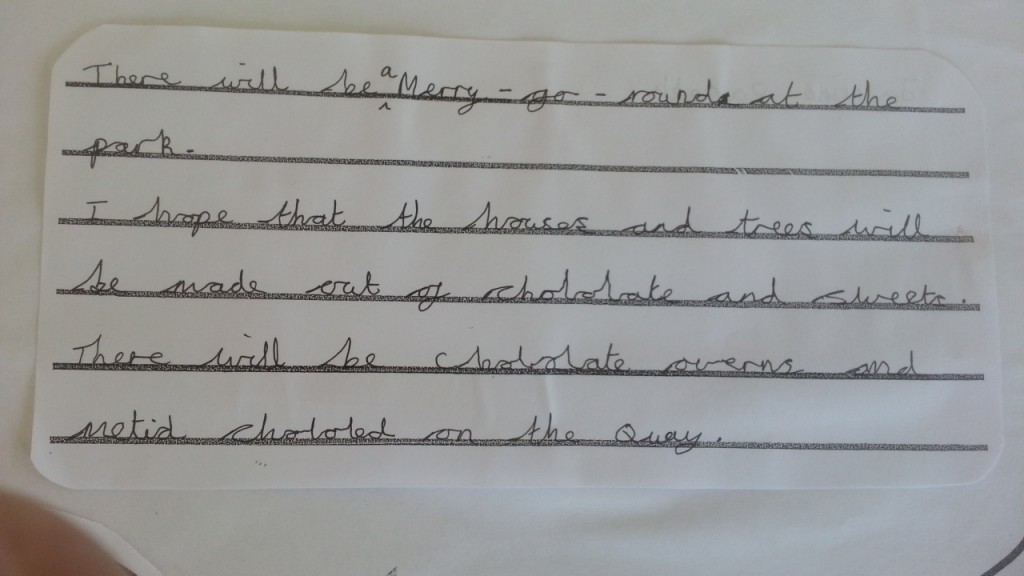 There will be a Merry-go-rounds at the
park.
I hope that the houses and trees will
be made out of chololate and sweets.
There will be chololate overns and
metid chololed on the Quay.